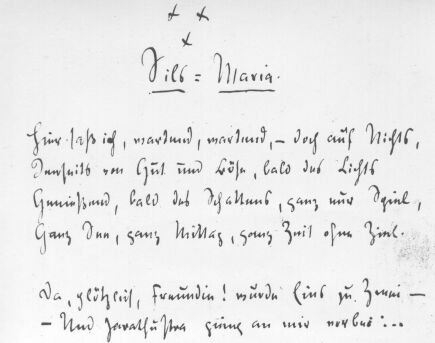 Sils=Maria.
Hier saß ich, wartend, wartend, – doch auf Nichts,
Jenseits von Gut und Böse, bald des Lichts
Genießend, bald des Schattens, ganz nur Spiel,
Ganz See, ganz Mittag, ganz Zeit ohne Ziel.
Da, plötzlich, Freundin! wurde Eins zu Zwei –
– Und Zarathustra gieng an mir vorbei ...